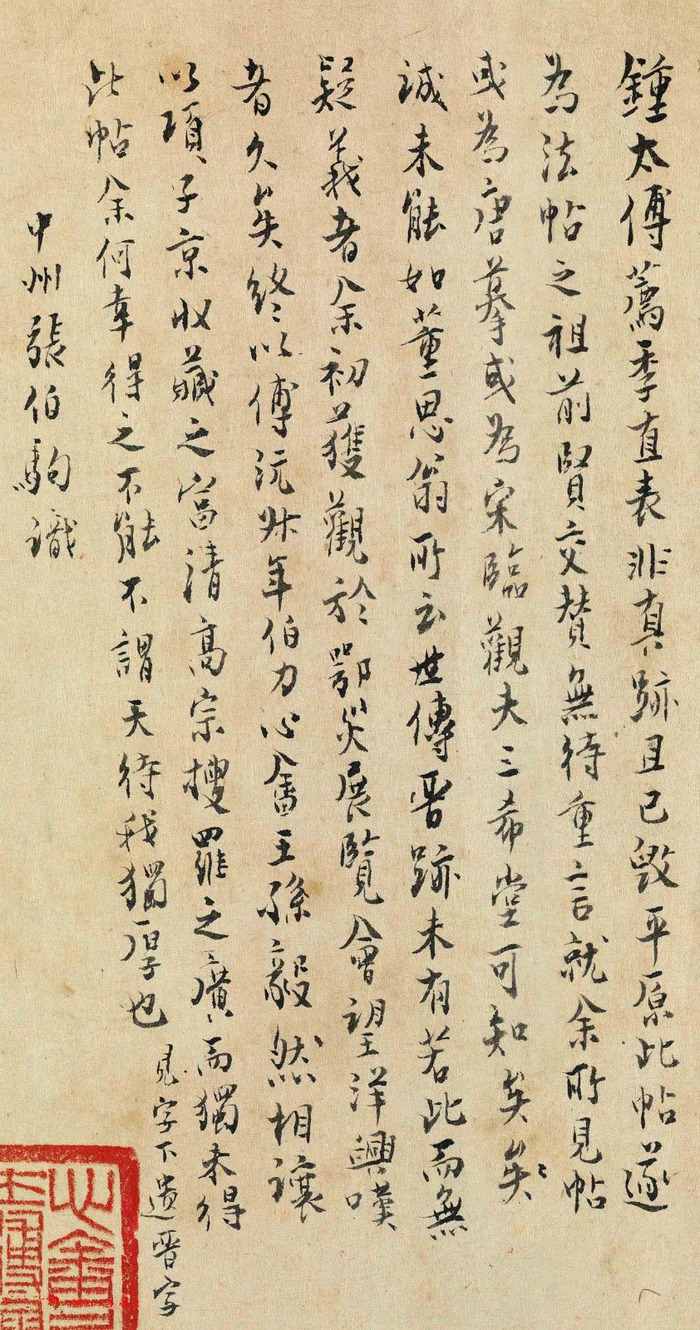 鍾太傅薦季直表非真跡且已毀平原此帖遂
為法帖之祖前賢交賛無待重言就余所見帖
或為唐摹或為宋臨觀夫三希堂可知矣矣
誠未能如董思翁所云世傳晋跡未有若此而無
疑義者余初獲觀於鄂災展覽會望洋興嘆
者久矣終以傅沅叔年伯力心畬王孫毅然相讓
以項子京收藏之富清高宗搜羅之廣而獨未得
此帖余何幸得之不能不謂天待我獨厚也
見字下遺晋字
中州張伯駒識